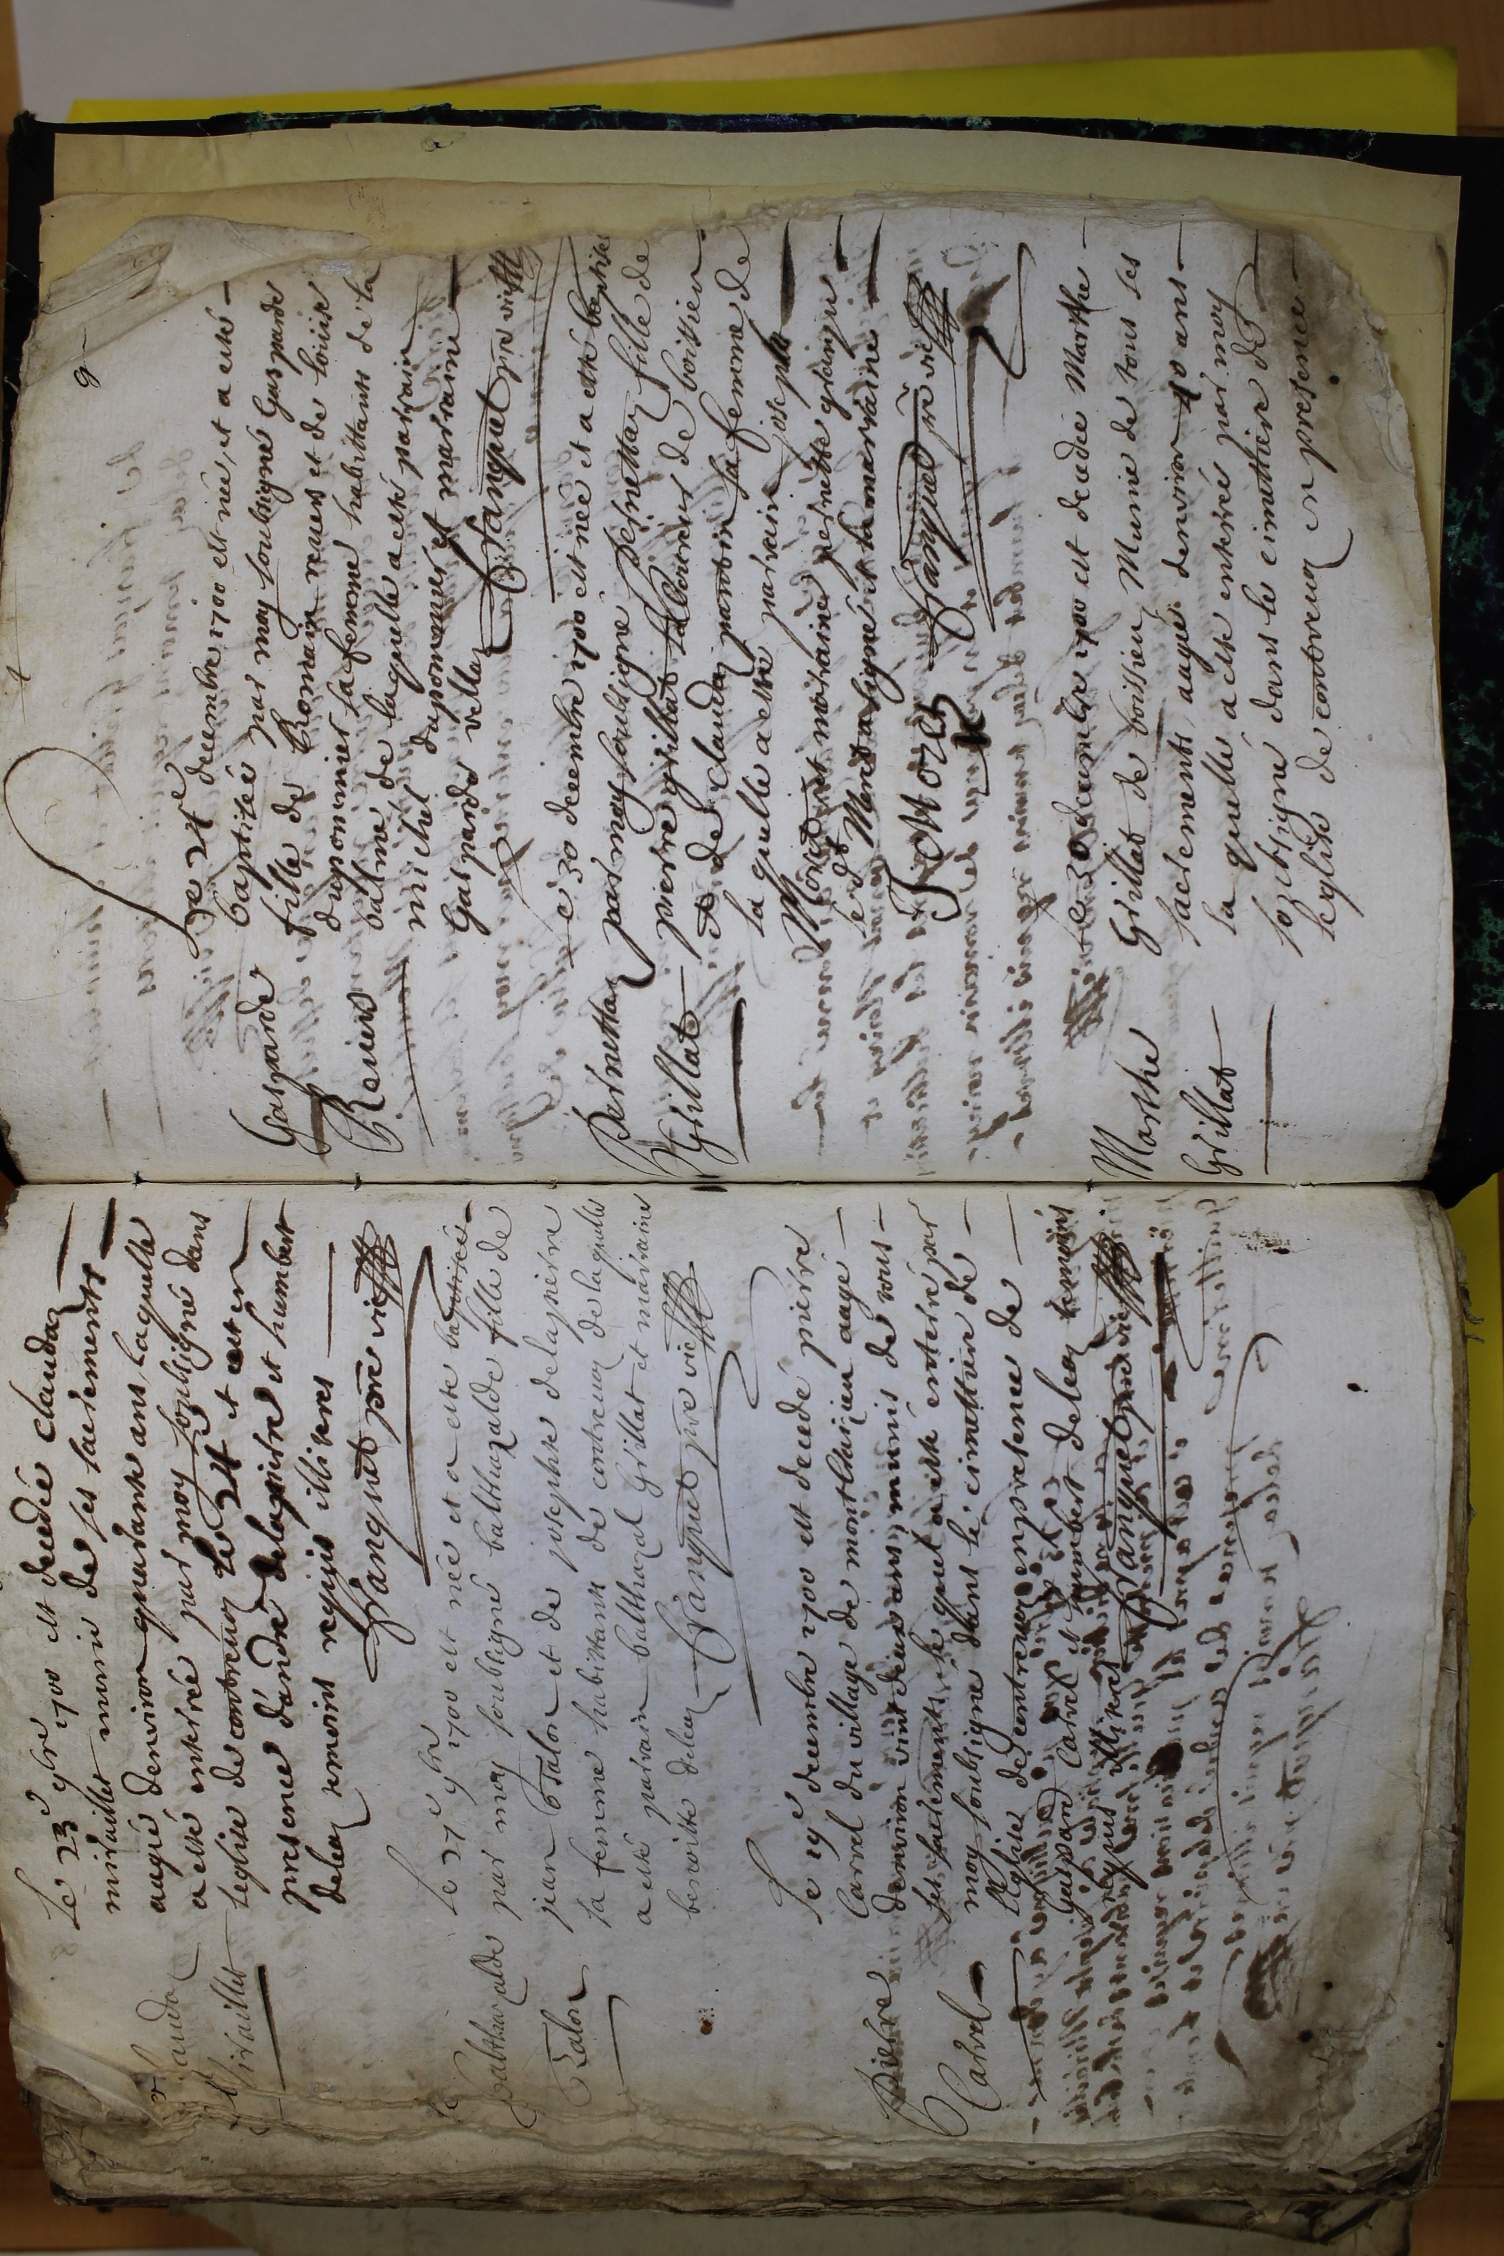 Claudaz
Miraillet
Le 23e 9bre 1700 est decedée claudaz
miraillet munie de ses sacrements
aagée denviron quarante ans, laquelle
a esté enterrée par moy soubsigné dans
leglise de contrevoz le 24e et cet en
presence dandré delapierre et humbert
deleaz temoins requis illiteres
Tanquet pre vic
Balthazarde
Talon
Le 27e 9bre 1700 est née et a esté baptisée
par moy soubsigné balthazalde fille de
jean Talon et de josephte delapierre
sa femme habittants de contrevoz de laquelle
a esté parrain balthazal Grillat et marraine
benoitte deleaz
Tanquet pre vic
Pierre
Carrel
Le 19e decembre 1700 est decedé pierre
Carrel du village de montbleisieu aagé
denviron vint deux ans, munis de tous
ses sacrements, le quel a esté enterré par
moy soubsigné dans le cimettiere de
leglise de contrevoz en presence de
gaspard Carrel et humbert deleaz temoins
requis illiteres
Tanquet pre vic
9
Gasparde
Reveux
Le 24e decembre 1700 est née, et a esté
baptisée par moy soubsigné Gasparde
fille de Romain reveux et de louise
duponnier sa femme habittants de la
balme de laquelle a esté parrain
michel duponnier et marraine
Gasparde vellaz
Tanquet pre vic
Pernettaz
Grillat
Le 30 decembre 1700 est née et a esté baptisée
par moy soubsigné pernettaz fille de
pierre grillat laboureur de boissieu
et de claudaz pantin sa femme de
la quelle a esté parrain joseph
Moret et marraine pernette grange
le dt Moret a signé et la marraine
J MORET
Tanquet pre vic
Marthe
Grillat
Le 30 decembre 1700 est decedée Marthe
Grillat de boissieu Munie de tous ses
sacrements, aagée denviron 40 ans
la quelle a esté enterrée par moy
soubsigné dans le cimettiere de
leglise de contrevoz en presence